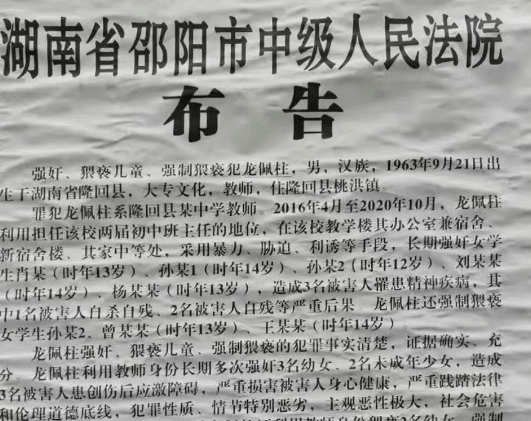 湖南省邵阳市中级人民法院
布告
强奸、猥亵儿童、强制猥亵犯龙佩柱，男，汉族，1963年9月21日出
生于湖南省隆回县，大专文化，教师，住隆回县桃洪镇。
罪犯龙佩柱系隆回县某中学教师。2016年4月至2020年10月，龙佩柱
利用担任该校两届初中班主任的地位，在该校教学楼其办公室兼宿舍、
新宿舍楼、其家中等处，采用暴力、胁迫、利诱等手段，长期强奸女学
生肖某（时年13岁）、孙某某（时年14岁）、孙某2（时年12岁）、刘某某
（时年14岁）、杨某某（时年13岁），造成3名被害人罹患精神疾病，其
中1名被害人自杀自残、2名被害人自残等严重后果 龙佩柱还强制猥亵
女学生孙某2、曾某某（时年13岁）、王某某（时年14岁）。
龙佩柱强奸、猥亵儿童、强制猥亵的犯罪事实清楚，证据确实、充
分 龙佩柱利用教师身份长期多次强奸3名幼女、2名未成年少女，造成
3名被害人患创伤后应激障碍，严重损害被害人身心健康，严重践踏法律
和伦理道德底线，犯罪性质、情节特别恶劣，主观恶性极大，社会危害
利用教师身份猥亵2名幼女、强制